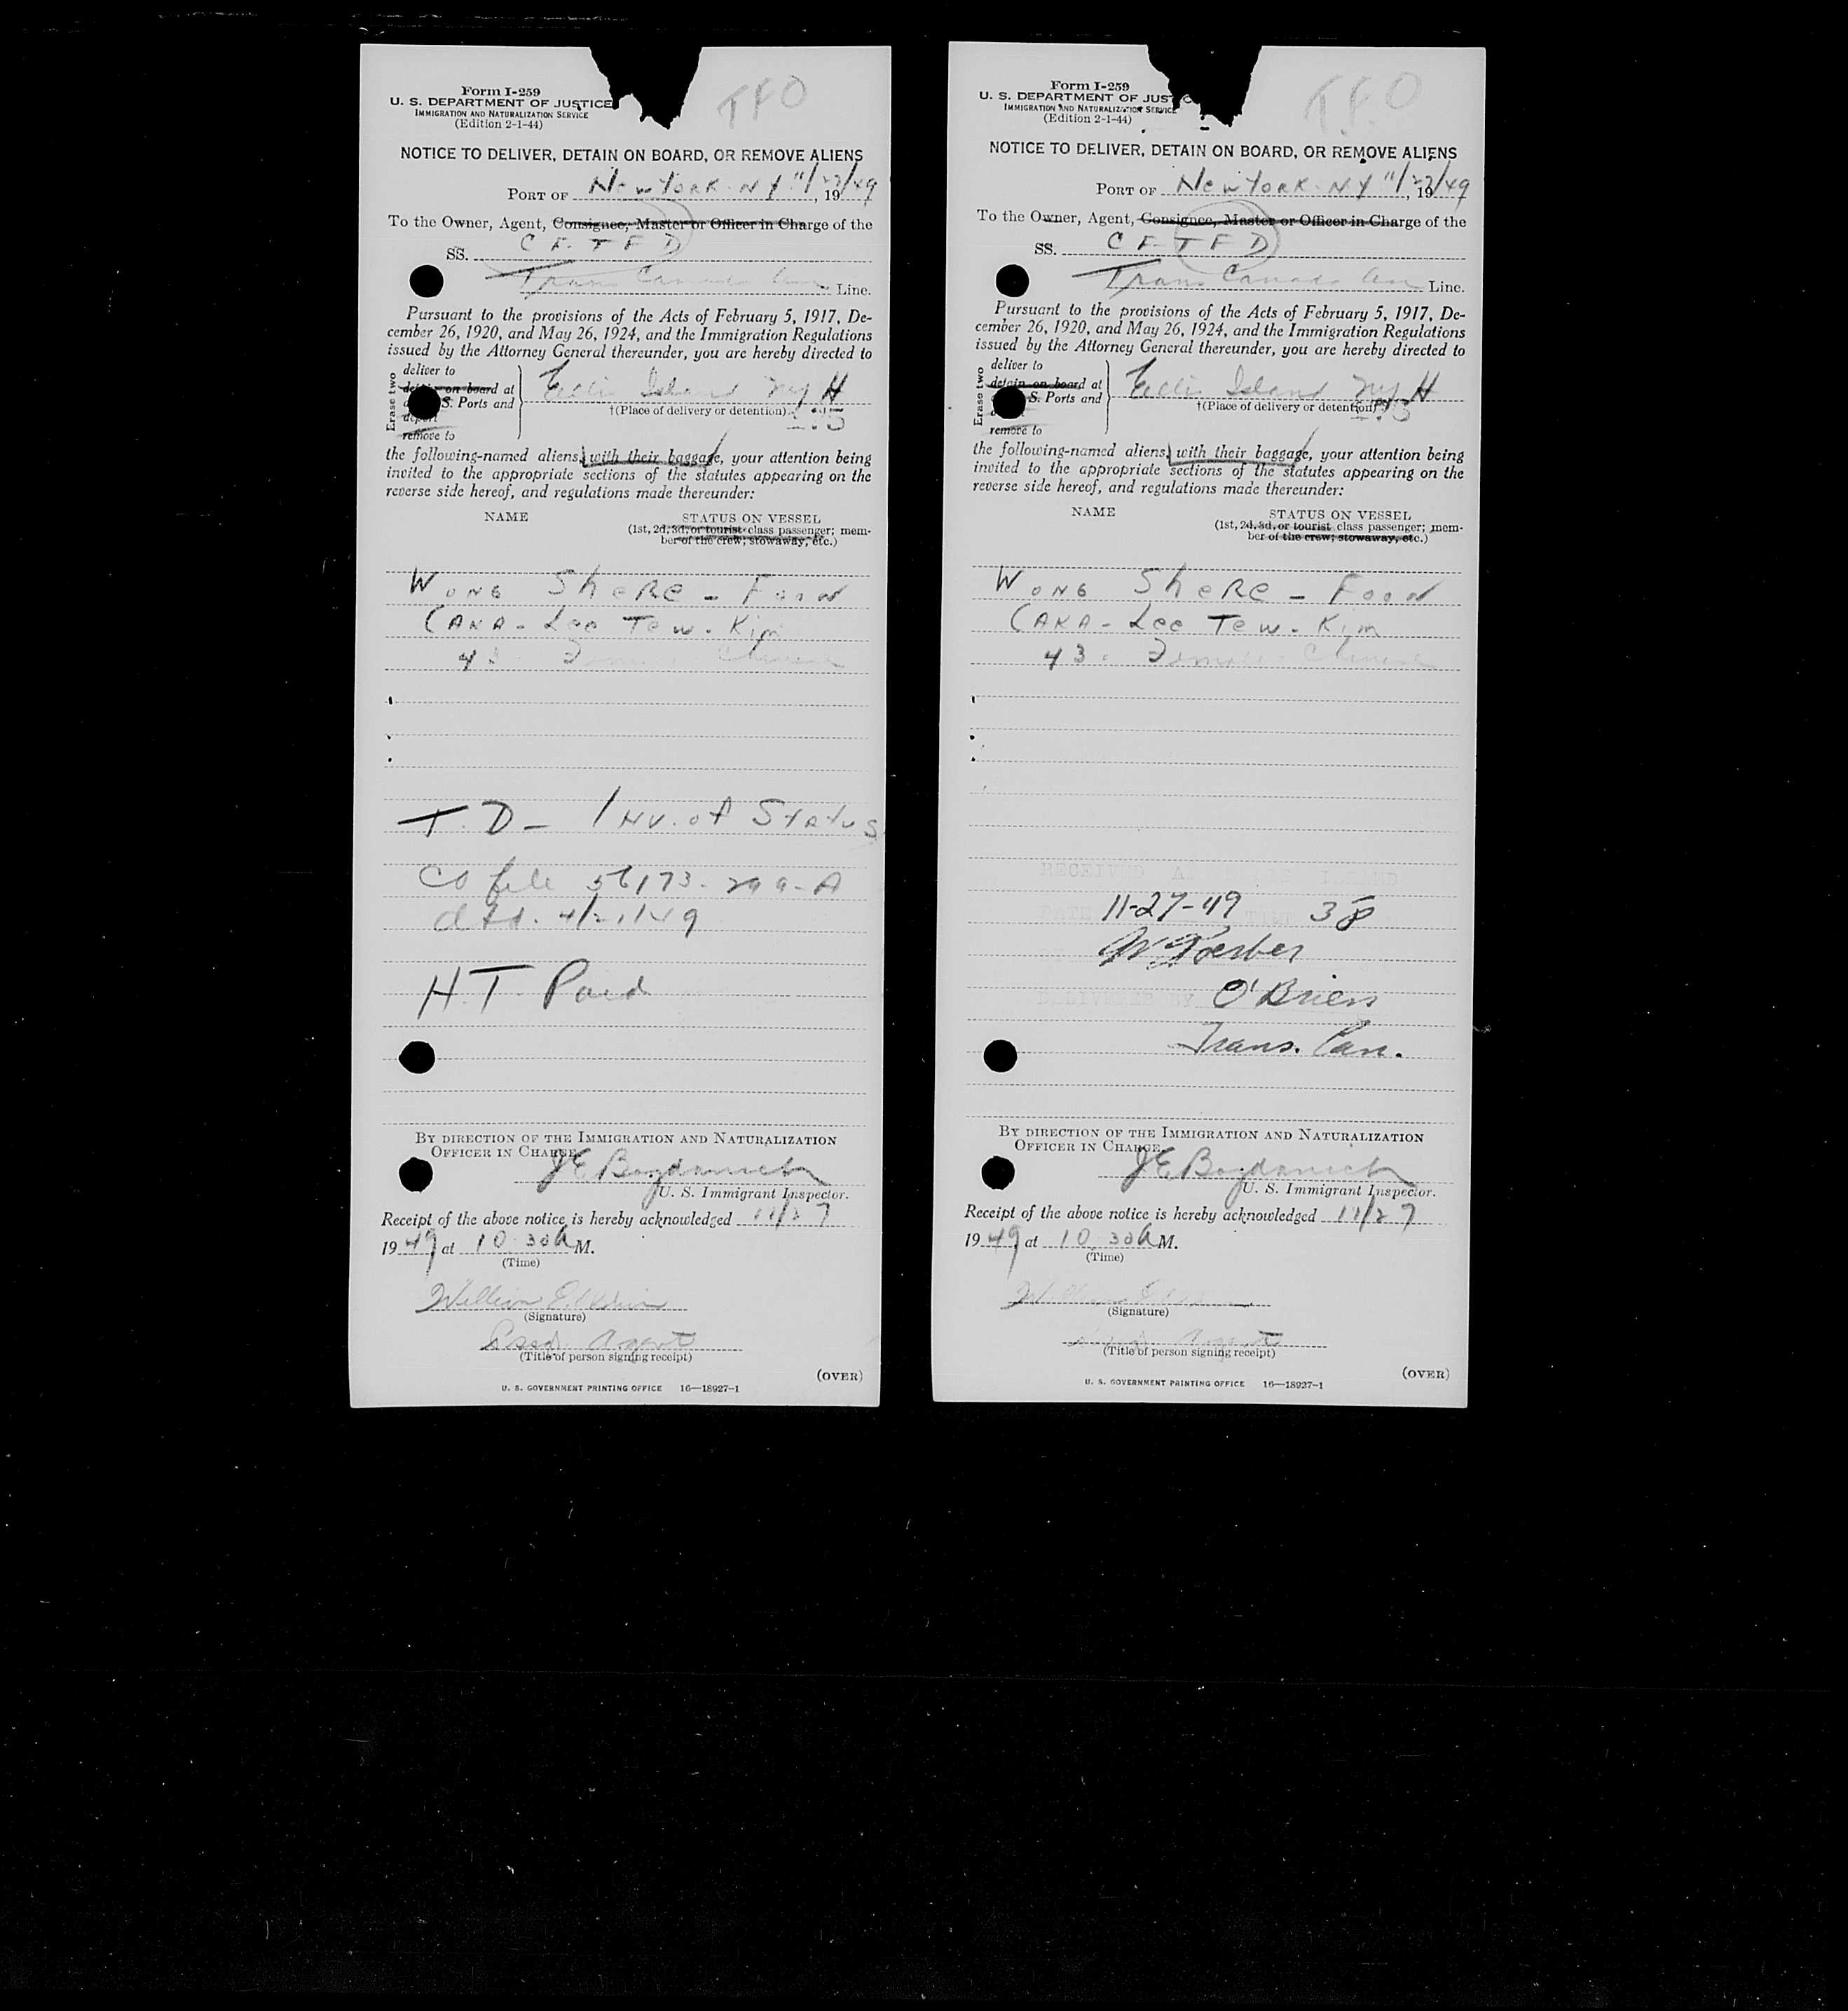 TFO
Form I-259
U. S. DEPARTMENT OF JUSTICE
IMMIGRATION AND NATURALIZATION SERVICE
(Edition 2-1-44)
NOTICE TO DELIVER, DETAIN ON BOARD, OR REMOVE ALIENS
PORT OF New York. NY 11/27/49, 19
To the Owner, Agent, Consignee, Master or Officer in Charge of the
SS. C F-T F D
Trans Canada Line.
Pursuant to the provisions of the Acts of February 5, 1917, De-
cember 26, 1920, and May 26, 1924, and the Immigration Regulations
issued by the Attorney General thereunder, you are hereby directed to
Erase two
deliver to
detain on board at
S. Ports and
deport
remove to
Ellis Island NY H
†(Place of delivery or detention)
the following-named aliens, with their baggage, your attention being
invited to the appropriate sections of the statutes appearing on the
reverse side hereof, and regulations made thereunder:
NAME STATUS ON VESSEL
(1st, 2d, 3d, or tourist class passenger; mem-
ber of the crew; stowaway, etc.)
WONG SheRe - Foon
(AKA - Lee Tew. Kim
43. Female Chinese
T.D - Inv. of Status
CO file 56173-299-A
dtd. 4/21/49
H.T. Paid
BY DIRECTION OF THE IMMIGRATION AND NATURALIZATION
OFFICER IN CHARGE
JE Bogdanich
U. S. Immigrant Inspector.
Receipt of the above notice is hereby acknowledged 11/27
1949, at 10 30 A M.
(Time)
William
(Signature)
Asst Agent
(Title of person signing receipt)
(OVER)
U. S. GOVERNMENT PRINTING OFFICE 16—18927-1
T.F.O
Form I-259
U. S. DEPARTMENT OF JUSTICE
IMMIGRATION AND NATURALIZATION SERVICE
(Edition 2-1-44)
NOTICE TO DELIVER, DETAIN ON BOARD, OR REMOVE ALIENS
PORT OF New York. NY 11/27/49, 19
To the Owner, Agent, Consignee, Master or Officer in Charge of the
SS. C F-T F D
Trans Canada Line.
Pursuant to the provisions of the Acts of February 5, 1917, De-
cember 26, 1920, and May 26, 1924, and the Immigration Regulations
issued by the Attorney General thereunder, you are hereby directed to
Erase two
deliver to
detain on board at
S. Ports and
remove to
Ellis Island NY H
†(Place of delivery or detention)
the following-named aliens, with their baggage, your attention being
invited to the appropriate sections of the statutes appearing on the
reverse side hereof, and regulations made thereunder:
NAME STATUS ON VESSEL
(1st, 2d, 3d, or tourist class passenger; mem-
ber of the crew; stowaway, etc.)
WONG SheRe - Foon
(AKA - Lee Tew. Kim
43. Female Chinese
RECEIVED AT ELLIS ISLAND
DATE 11-27-49 TIME 3 P
BY
DELIVERED BY O'Brien
Trans. Can.
BY DIRECTION OF THE IMMIGRATION AND NATURALIZATION
OFFICER IN CHARGE
JE Bogdanich
U. S. Immigrant Inspector.
Receipt of the above notice is hereby acknowledged 11/27
1949, at 10 30 A M.
(Time)
(Signature)
Agent
(Title of person signing receipt)
(OVER)
U. S. GOVERNMENT PRINTING OFFICE 16—18927-1